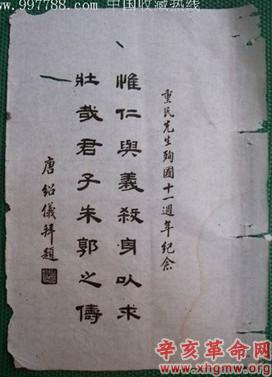 www.997788.com 中国收藏热线
重民先生殉國十一週年紀念
惟仁與義殺身以求
壯哉君子朱郭之儔
唐紹儀拜題
辛亥革命网
www.xhgmw.org